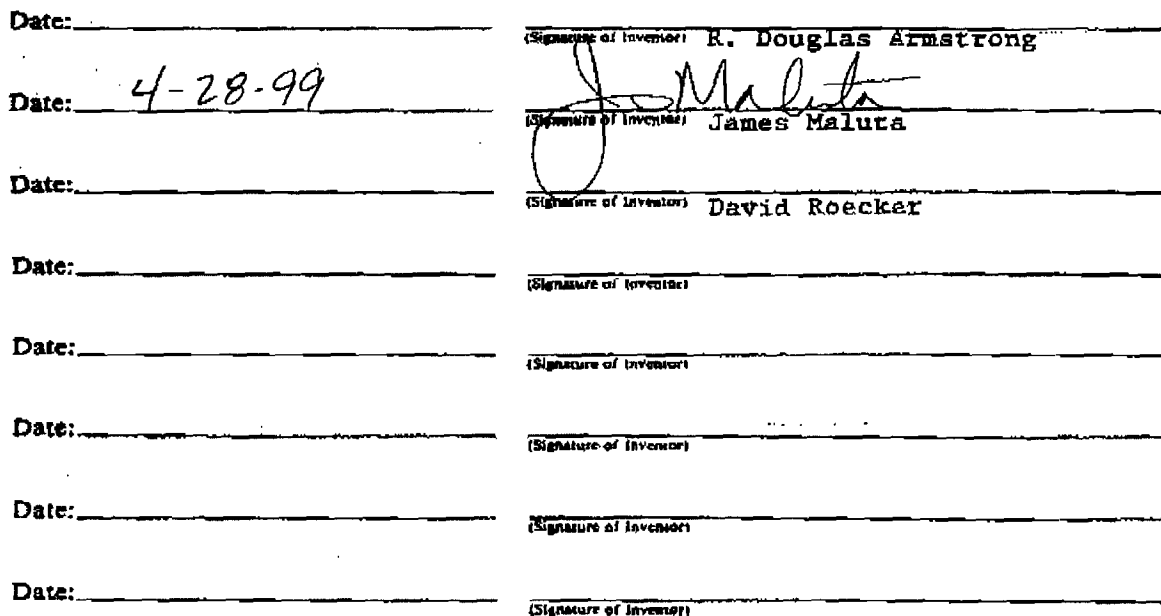 Date:
(Signature of Inventor) R. Douglas Armstrong
Date: 4-28-99 Jo Maluta
(Signature of Inventor) James Maluta
Date:
(Signature of Inventor) David Roecker
Date:
(Signature of Inventor)
Date:
(Signature of Inventor)
Date:
(Signature of Inventor)
Date:
(Signature of Inventor)
Date:
(Signature of Inventor)